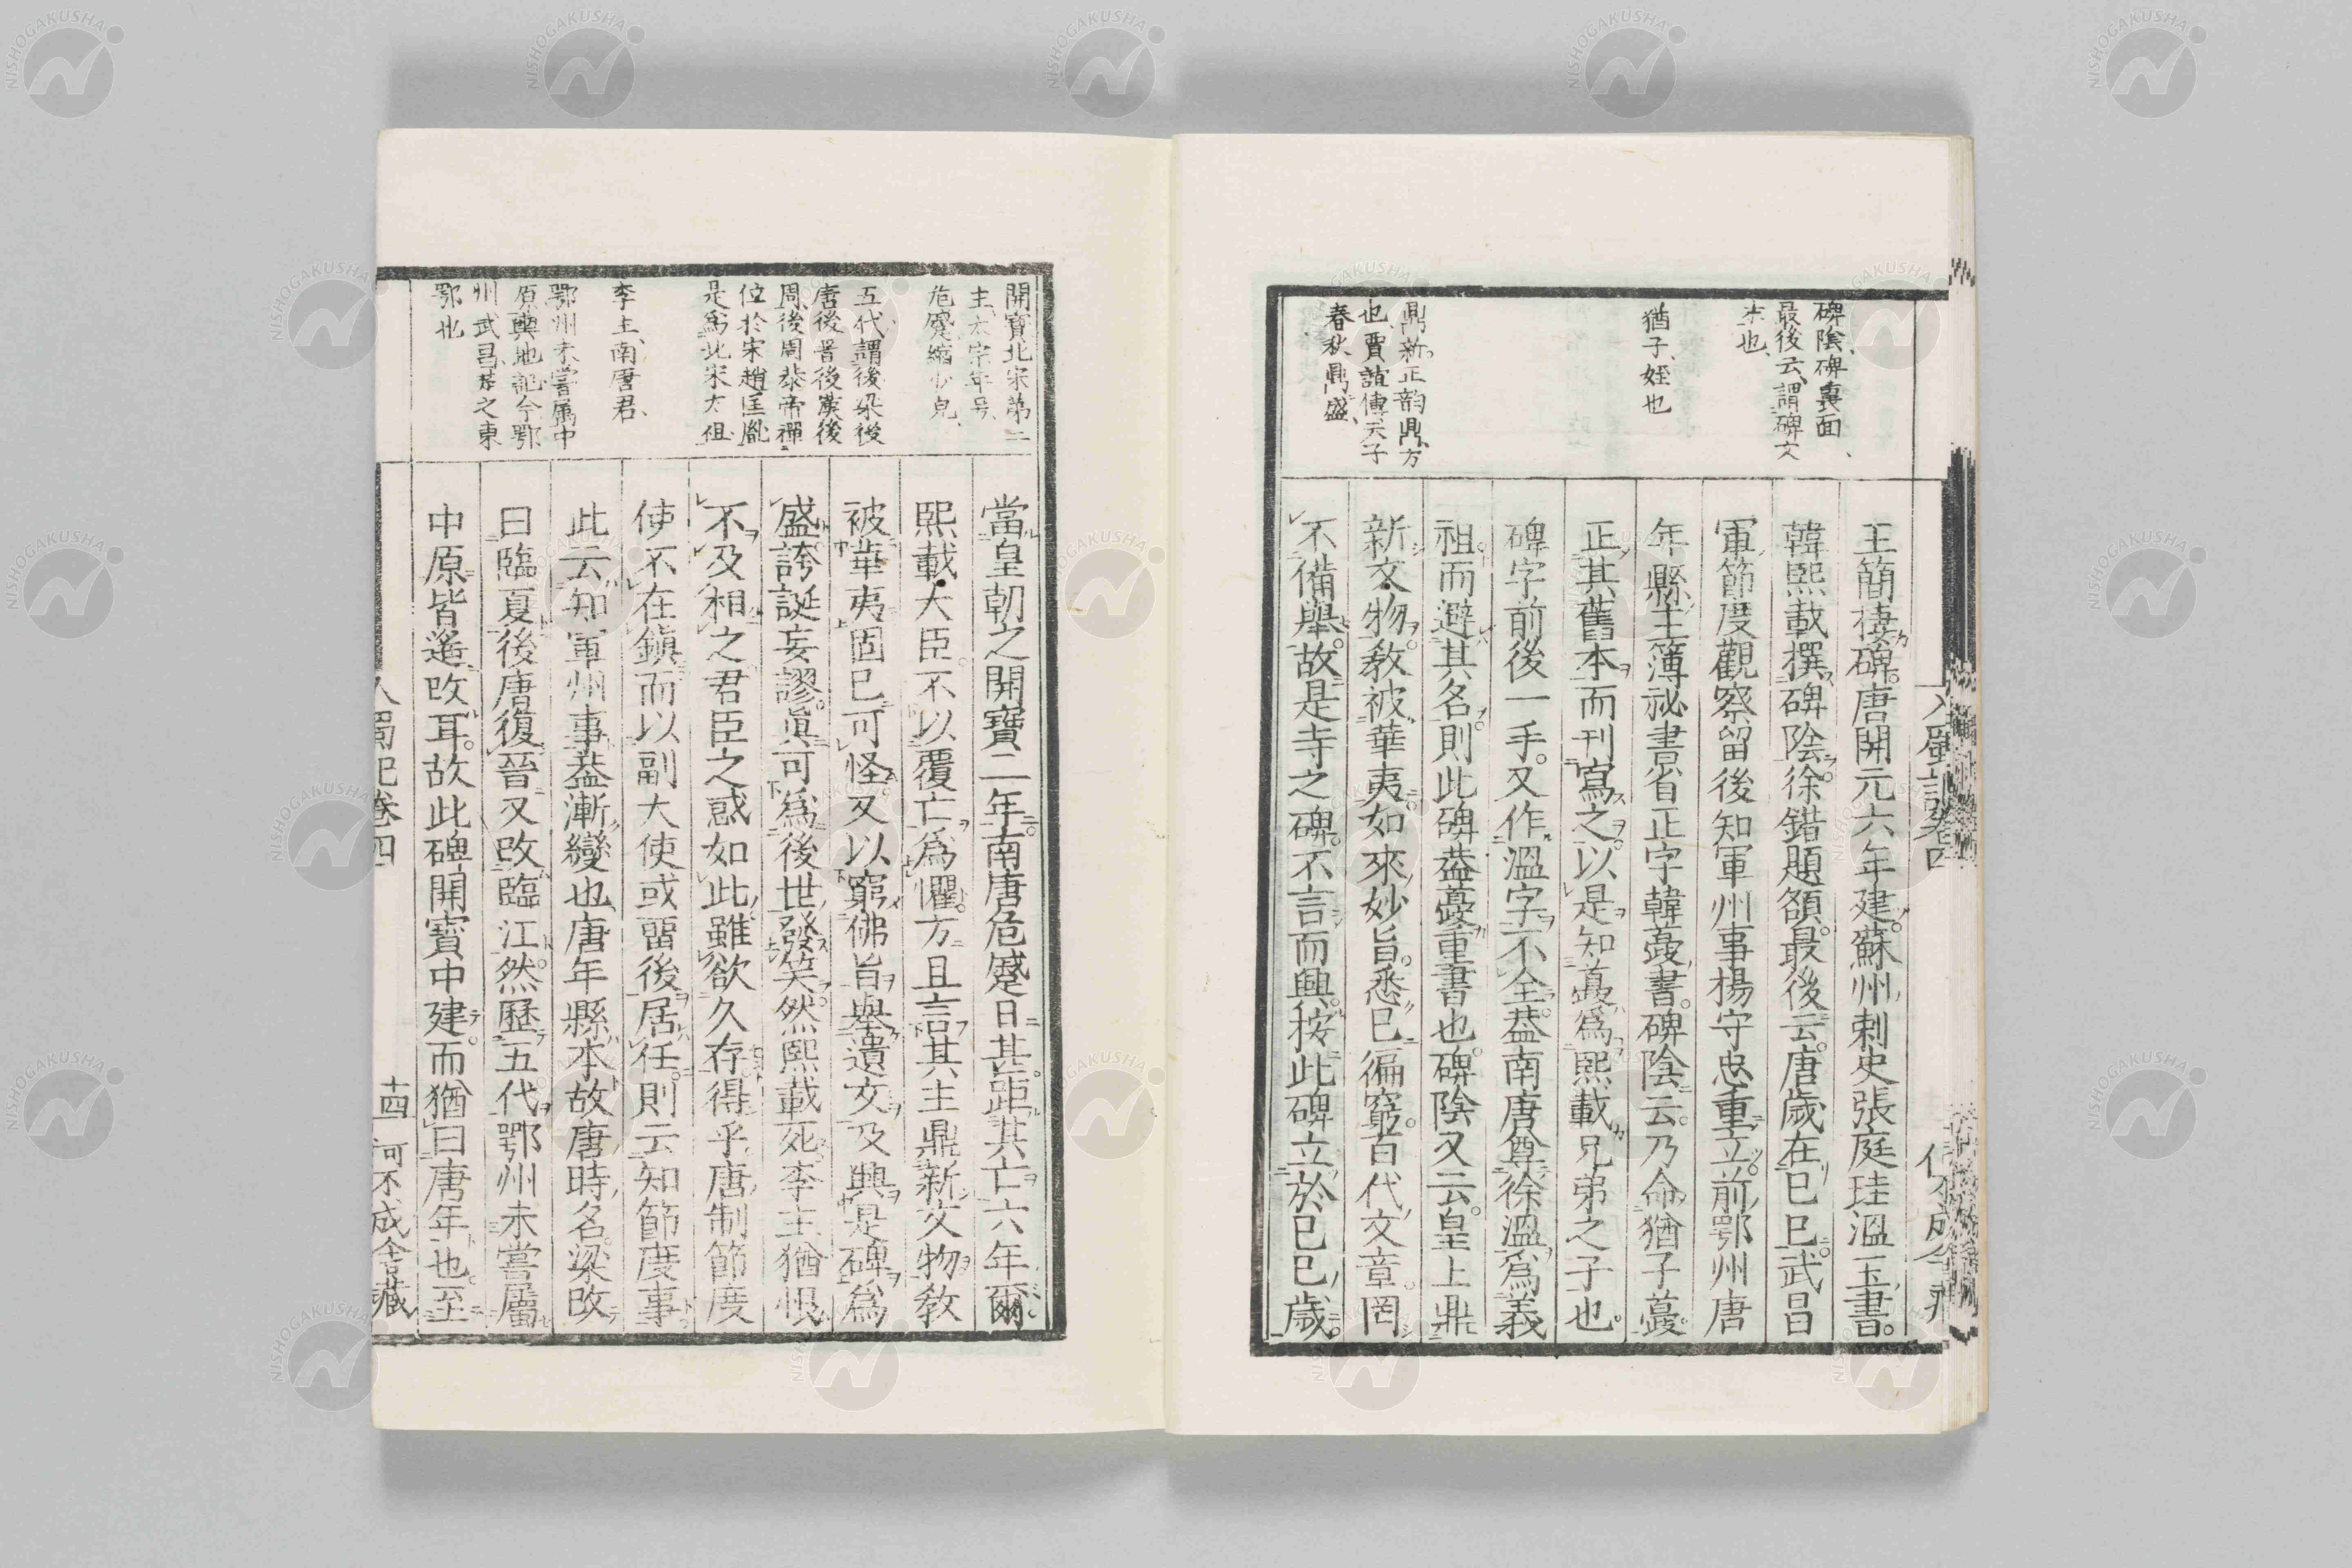 碑陰、碑裏面、
最後云、謂碑文
末也、
猶子、姪也
鼎新、正韵鼎、方
也、賈誼傳天子
春秋鼎盛、
王簡棲碑。唐開元六年建。蘇州刺史張庭珪溫玉書。
韓熙載撰碑陰。徐鍇題額。最後云。唐歲在己巳。武昌
軍節度觀察留後知軍州事楊守忠重立。前鄂州唐
年縣主簿祕書省正字韓夔書。碑陰云。乃命猶子夔
正其舊本而刊寫之。以是知夔爲熙載兄弟之子也。
碑字前後一手。又作溫字不全。葢南唐尊徐溫爲義
祖。而避其名。則此碑葢夔重書也。碑陰又云。皇上鼎
新文物。敎被華夷。如來妙旨。悉已徧窮。百代文章。罔
不備舉。故是寺之碑。不言而興。按此碑立於己巳歲。
開寶北宋第二
主、太宗年号、
危蹙縮小皃、
五代、謂後梁後
唐後晋後漢後
周、後周恭帝禪
位於宋趙匡胤
是爲北宋太祖、
李主、南唐君、
鄂州未嘗属中
原輿地記今鄂
州、武昌県之東
鄂也
當皇朝之開寶二年。南唐危蹙日甚。距其亡六年爾。
熙載大臣。不以覆亡爲懼。方且言其主鼎新文物敎
被華夷。固已可怪。又以窮佛旨舉遺文。及興是碑爲
盛。誇誕妄謬。眞可爲後世發笑。然熙載死。李主猶恨
不及相之。君臣之惑如此。雖欲久存得乎。唐制節度
使不在鎮。而以副大使或畱後居任。則云知節度事。
此云知軍州事。葢漸變也。唐年縣本故唐時名。梁改
曰臨夏。後唐復。晉又改臨江。然歷五代。鄂州未嘗屬
中原。皆遙改耳。故此碑開寶中建。而猶曰唐年也。至
入蜀記卷四
十四
何不成舍藏